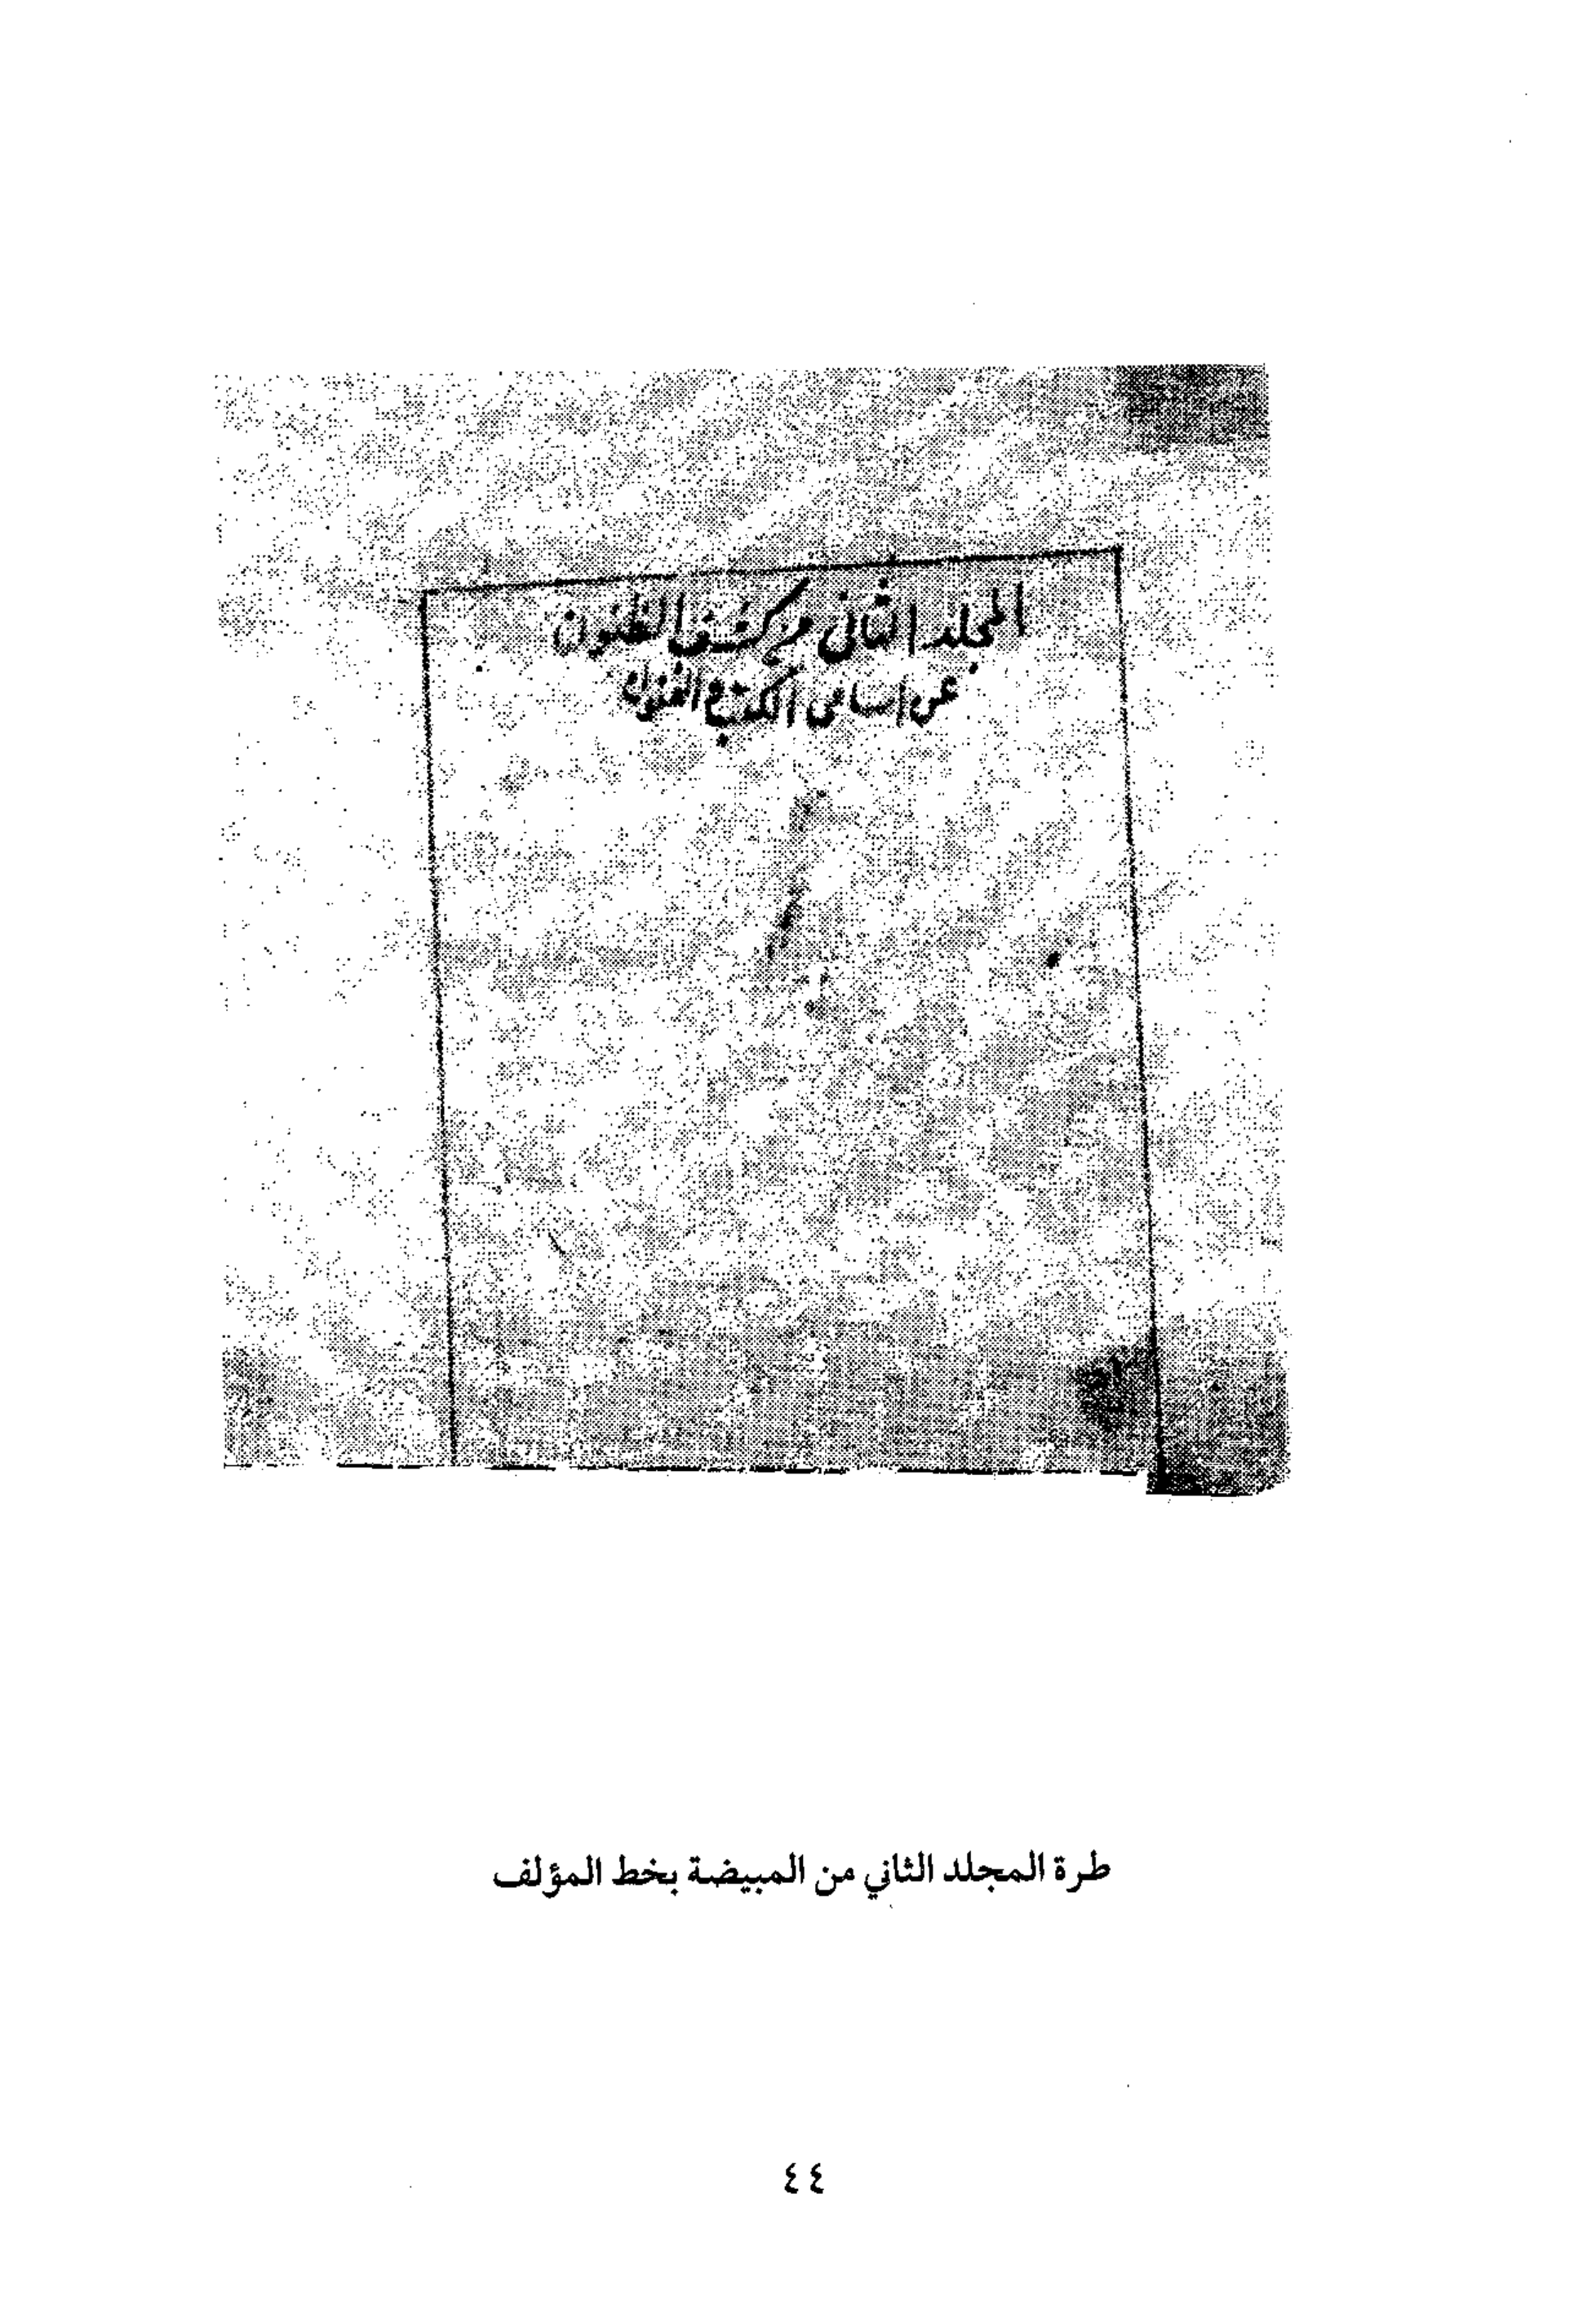 المجلد الثانى من كشف الظنون
عن اسامى الكتب و الفنون
طرة المجلد الثاني من المبيضة بخط المؤلف
٤٤